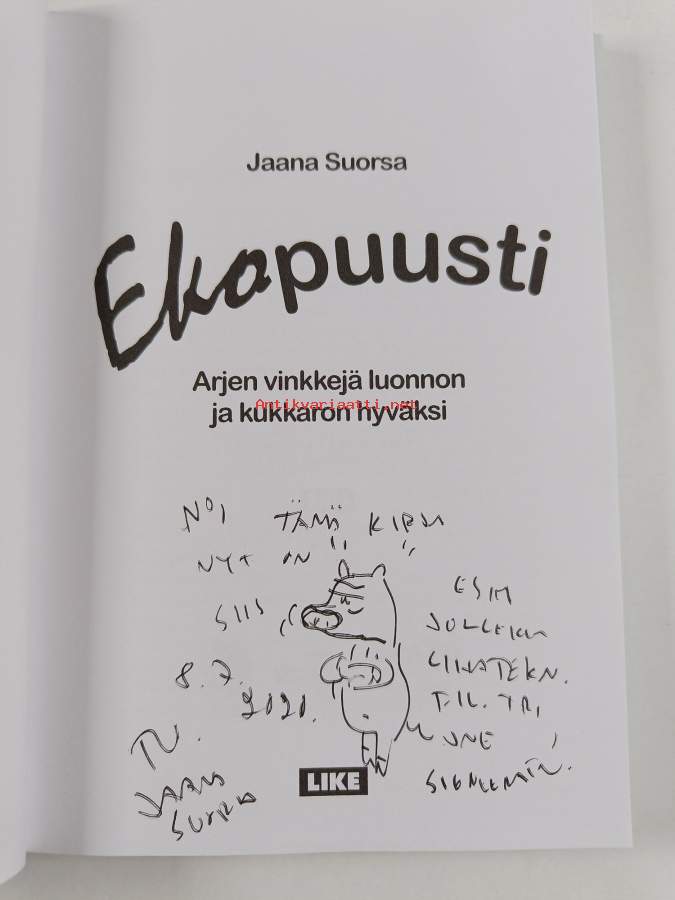 Jaana Suorsa
Ekopuusti
Arjen vinkkejä luonnon
Antikvariaatti.net
ja kukkaron hyväksi
NO 1 TÄMÄ KIRJA
NYT ON
SIIS
8.7.
2020.
TV.
JAANA
SUORSA
ESIM
JOLLEKIN
LIHATEKN.
FIL. TRI,
JNE
LIKE